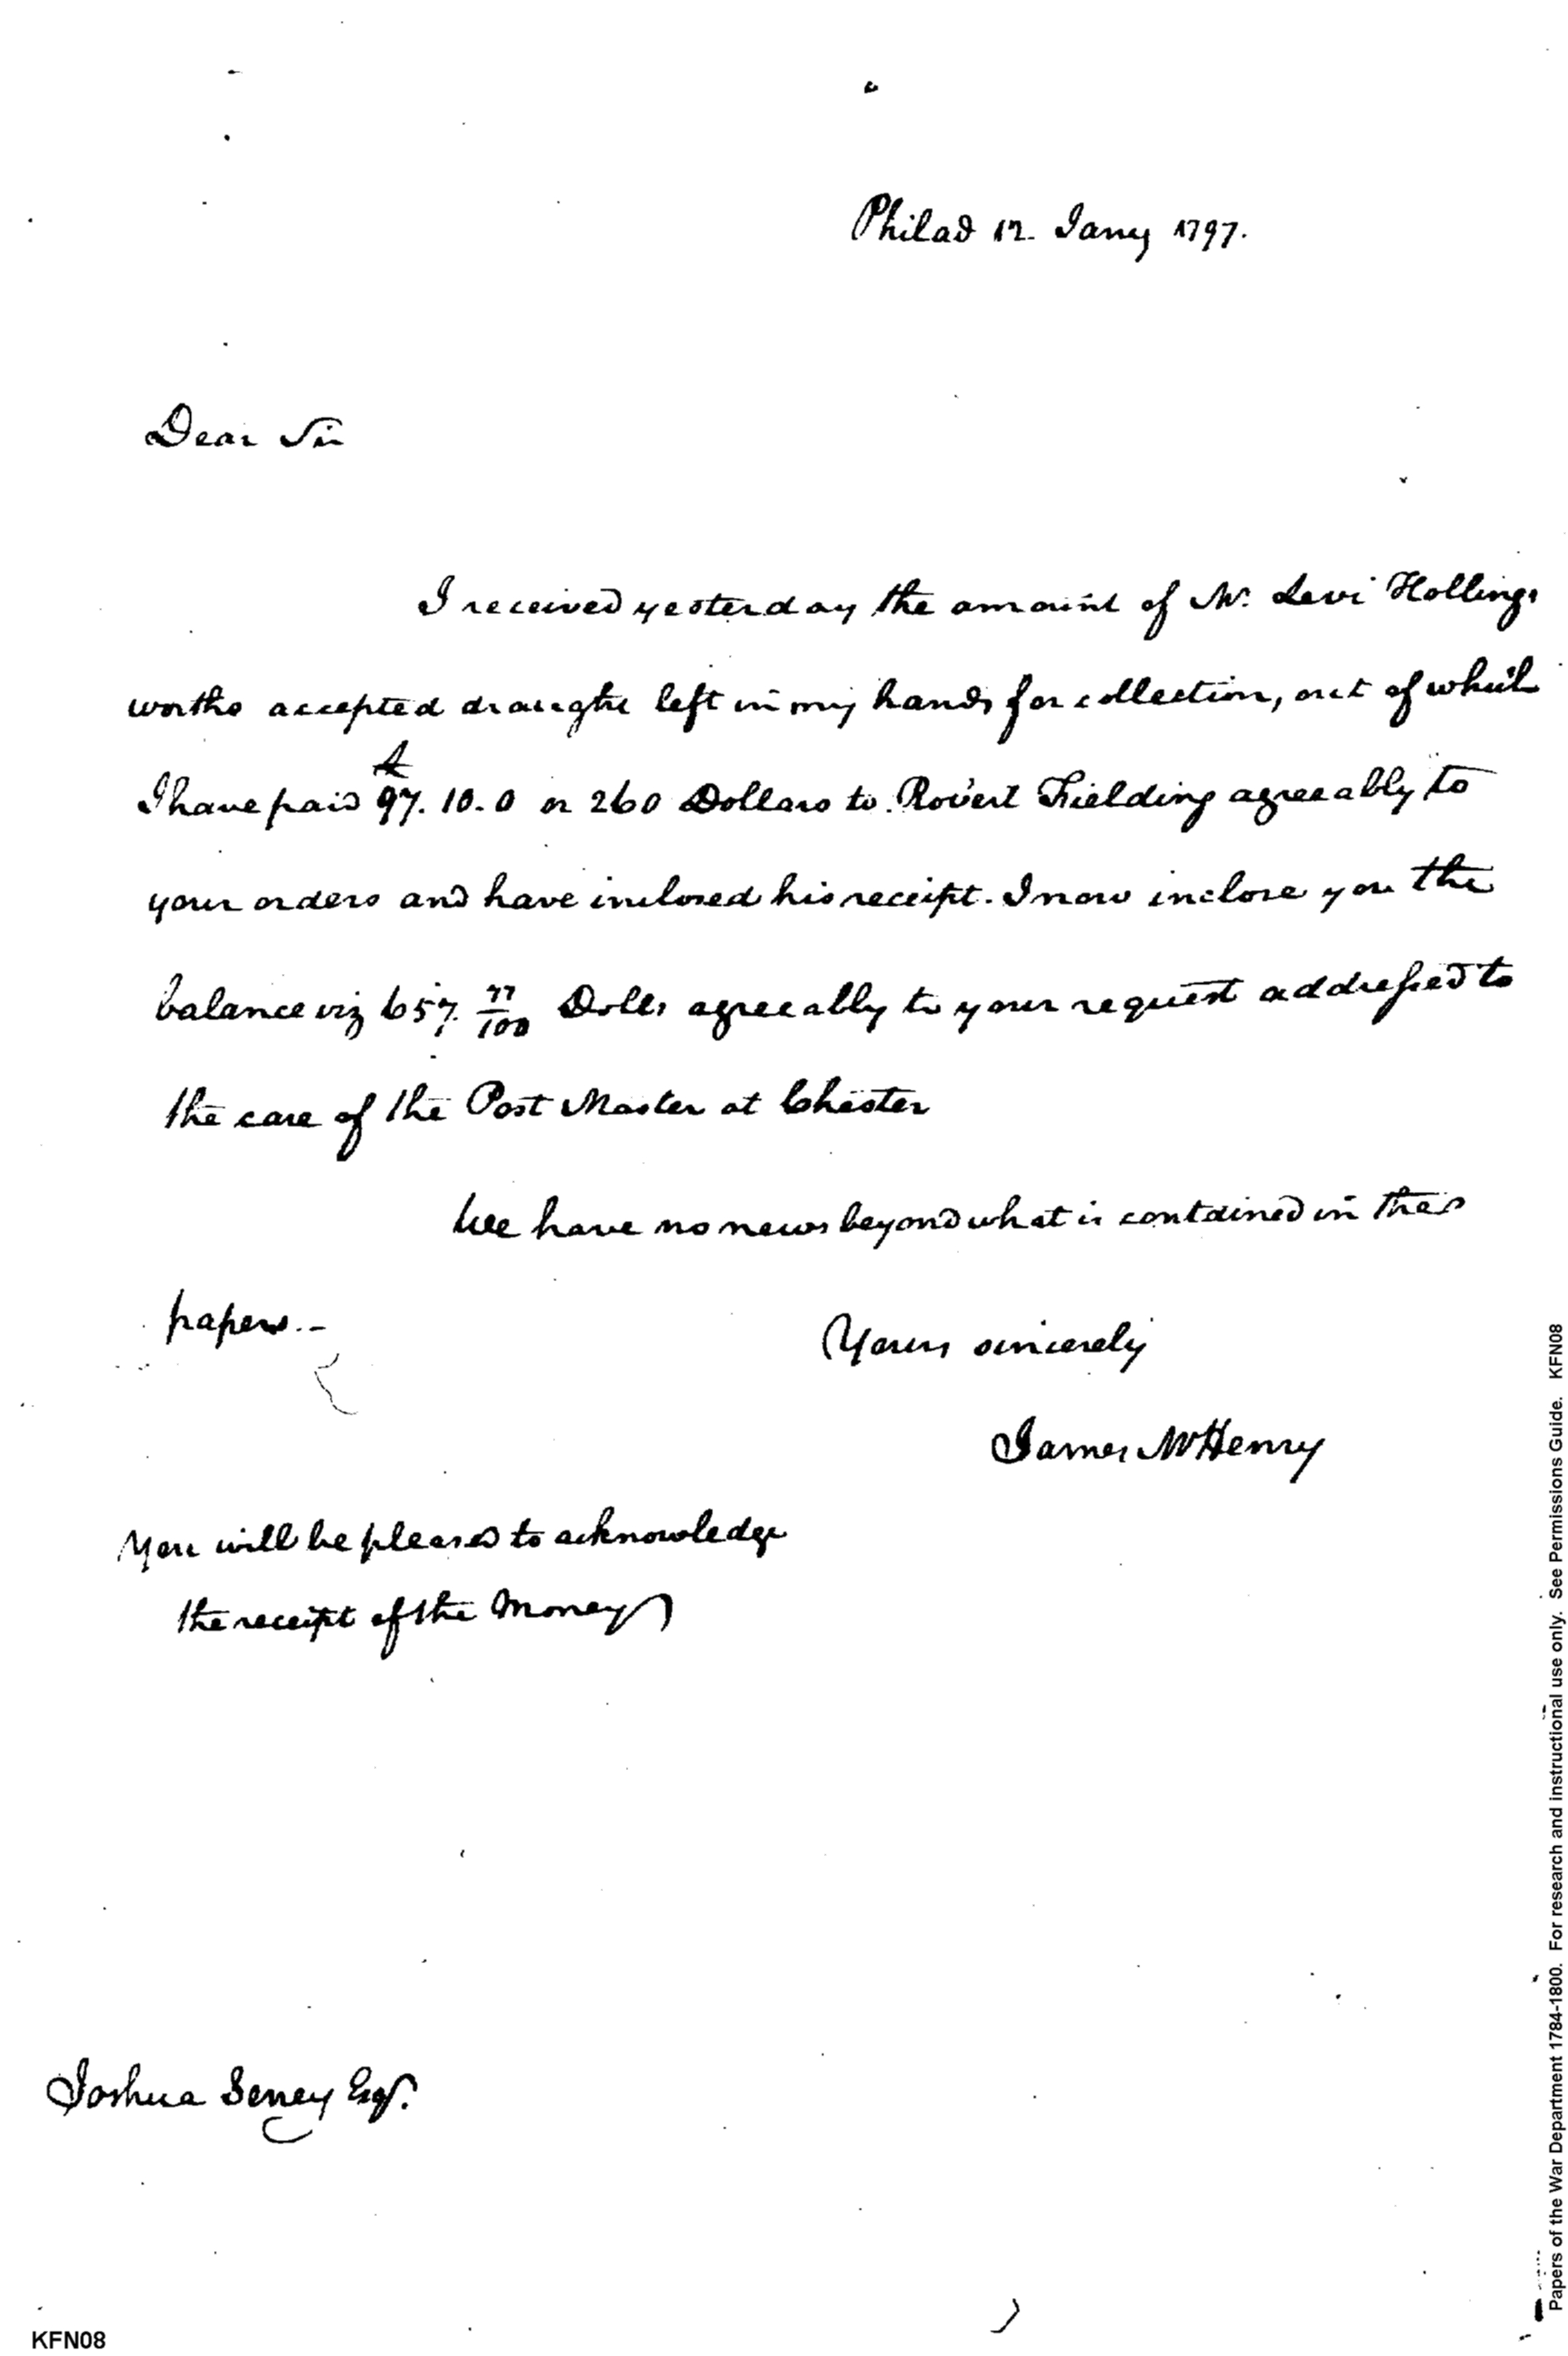 Philad 12. Jany 1797.
Dear Sir
I received yesterday the amount of Mr. Levi Hollings
worths accepted draught left in my hands for collection, out of which
£
I have paid 97. 10. 0 or 260 Dollars to Robert Fielding agreeably to
your orders and have inclosed his receipt. I now inclose you the
balance viz 657. 77/100 Dolls agreeably to your request addressed to
the care of the Post Master at Chester
We have no news beyond what is contained in the
papers.—
Yours sincerely
James McHenry
You will be pleased to acknowledge
the receipt of the Money
Joshua Seney Esqr.
KFN08
Papers of the War Department 1784-1800. For research and instructional use only. See Permissions Guide. KFN08